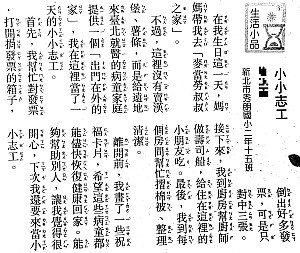 生活小品
小小志工
新北市秀朗國小二年十五班
在我生日這一天，媽
媽帶我去「麥當勞叔叔
之家」。
不過，這裡沒有賣漢
堡、薯條，而是給遠地
來臺北就醫的病童家庭
提供一個「出門在外的
家」，我在這裡當了一
天的小小志工。
首先，我幫忙對發票，
打開捐發票的箱子，
倒出好多發
票，可是只
對中三張。
接下來，我到廚房幫廚師
做壽司船，給住在這裡的
小朋友吃。最後，我到每
個房間幫忙摺棉被、整理
清潔。
離開前，我畫了一些祝
福卡片，希望這些病童都
能儘快恢復健康回家。能
夠幫助別人，讓我覺得很
開心，下次我還要來當小
小志工。